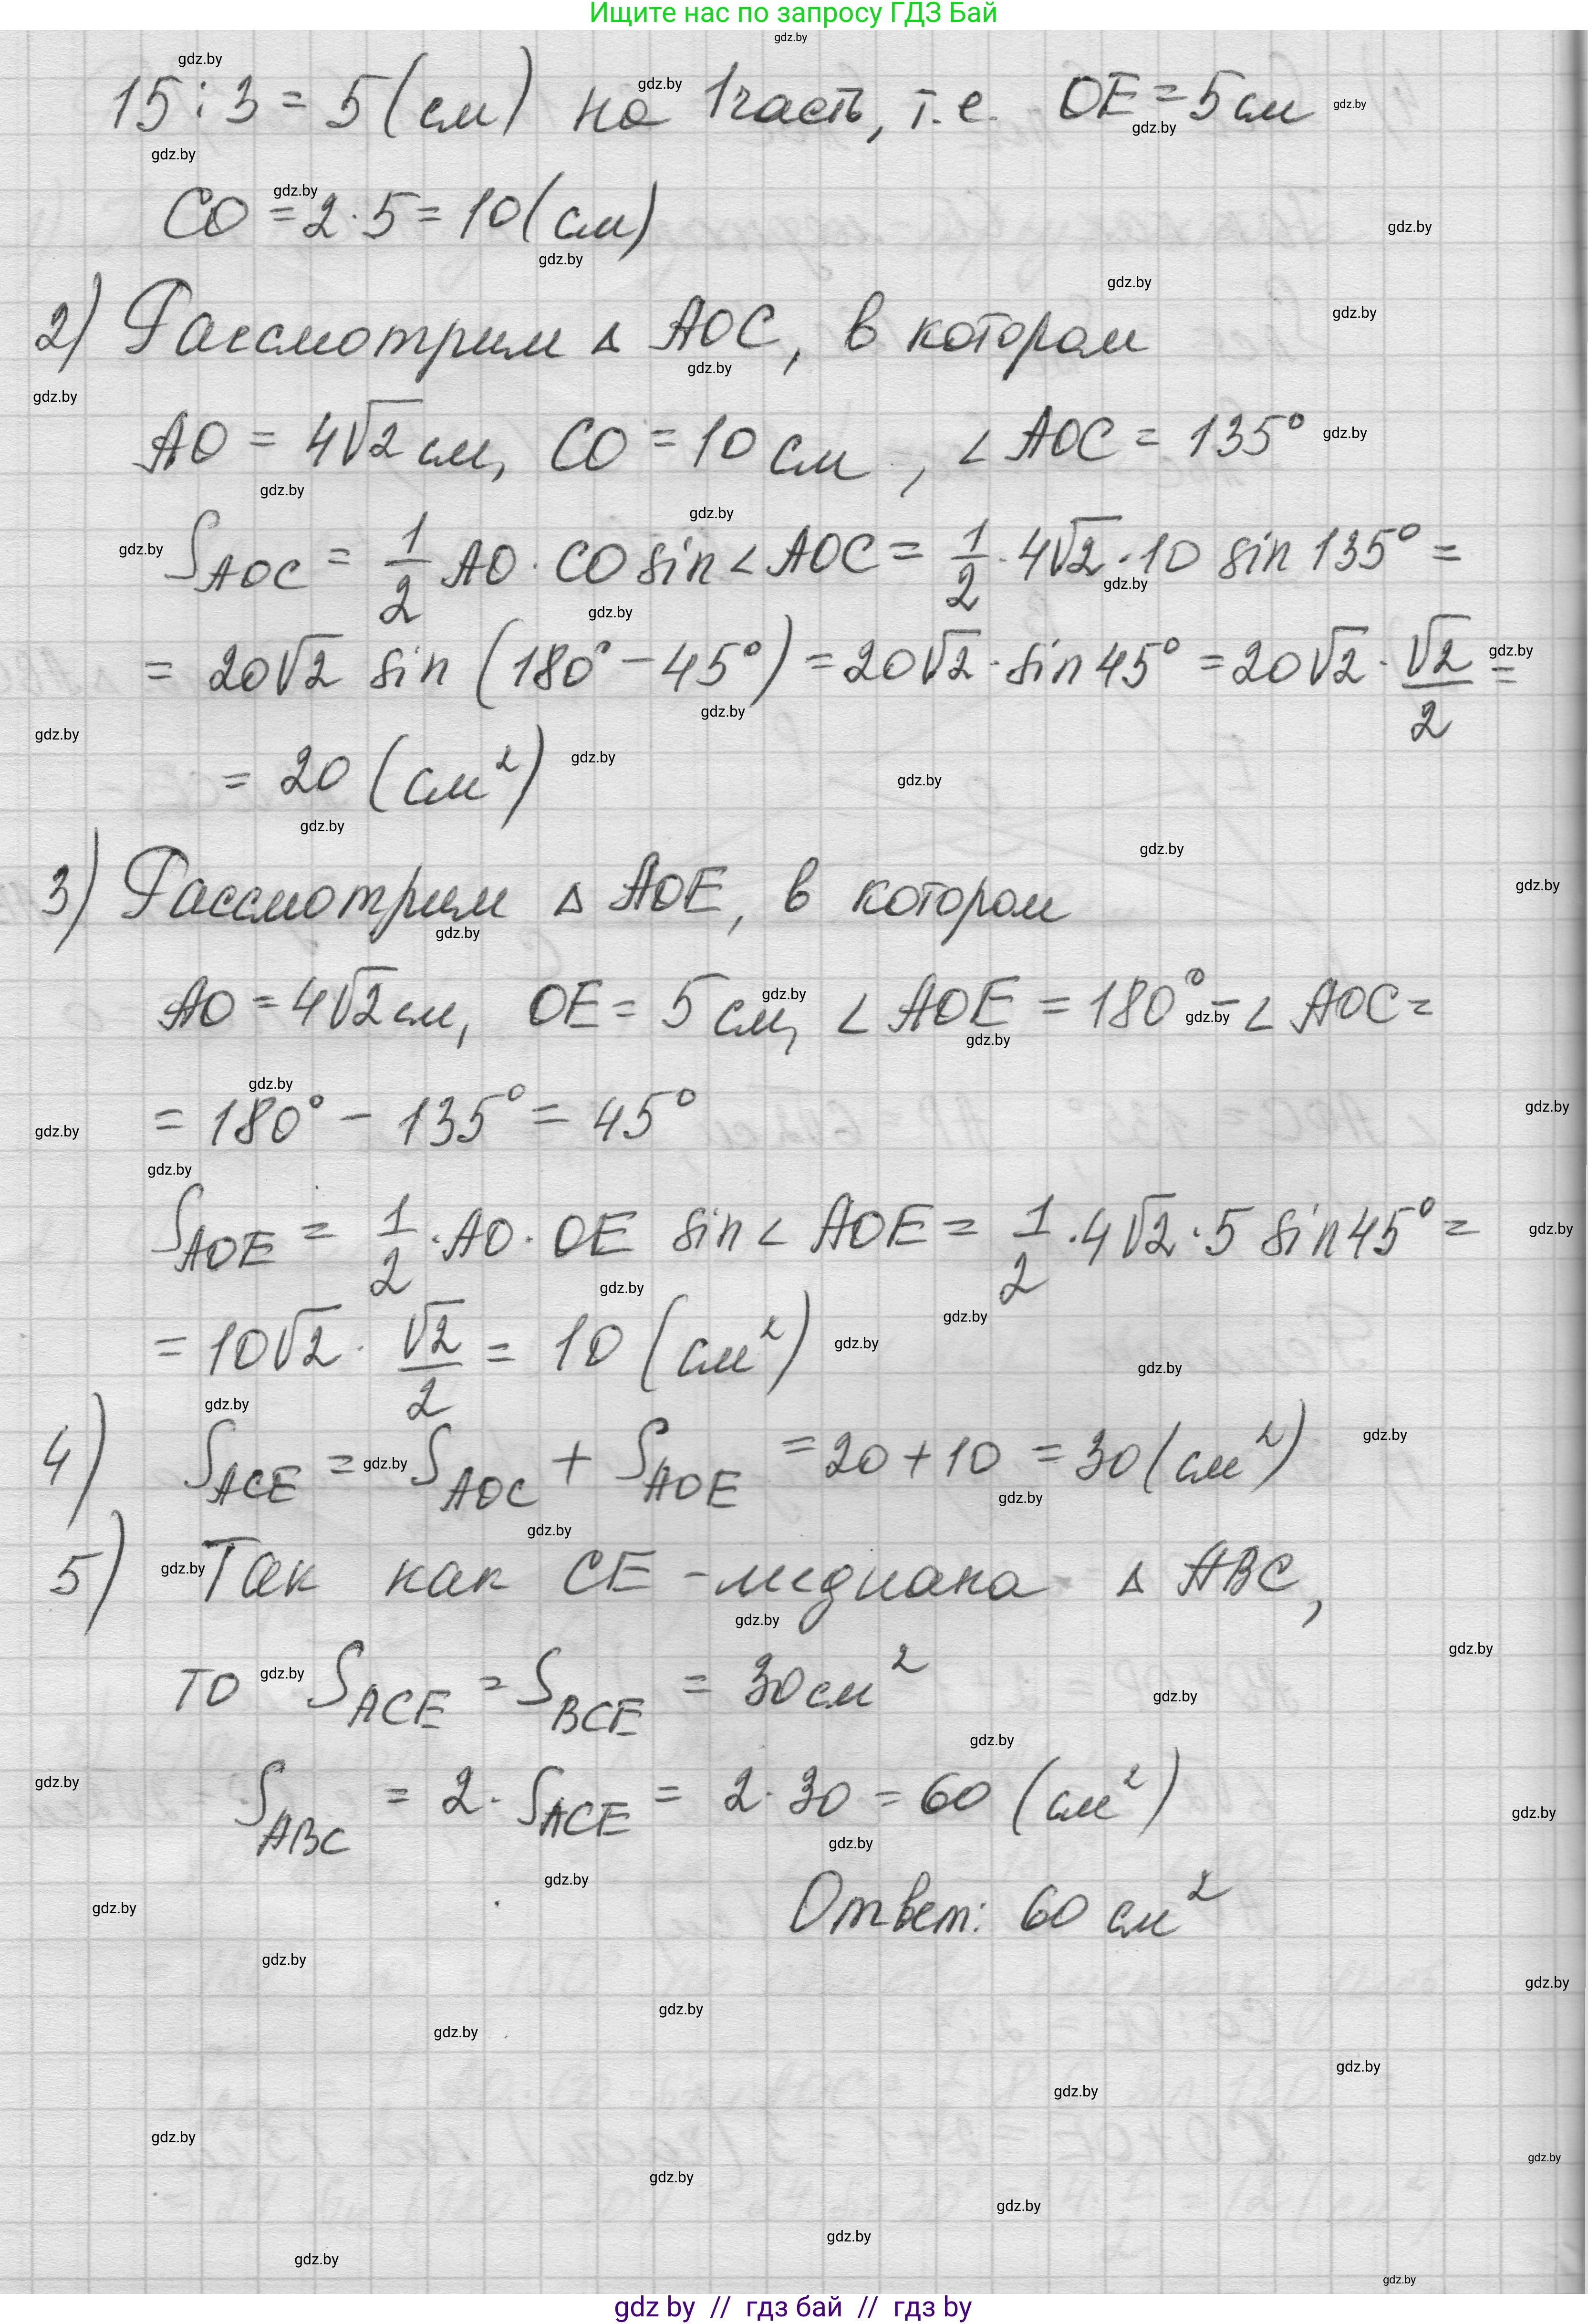 Ищите нас по запросу ГДЗ Бай
15 : 3 = 5 (см) на 1 часть, т.е. OE = 5 см
CO = 2 · 5 = 10 (см)
2) Рассмотрим △ AOC, в котором
AO = 4√2 см, CO = 10 см, ∠ AOC = 135°
S_AOC = 1/2 AO · CO sin ∠ AOC = 1/2 · 4√2 · 10 sin 135° =
= 20√2 sin (180° − 45°) = 20√2 · sin 45° = 20√2 · √2/2 =
= 20 (см²)
3) Рассмотрим △ AOE, в котором
AO = 4√2 см, OE = 5 см, ∠ AOE = 180° − ∠ AOC =
= 180° − 135° = 45°
S_AOE = 1/2 · AO · OE sin ∠ AOE = 1/2 · 4√2 · 5 sin 45° =
= 10√2 · √2/2 = 10 (см²)
4) S_ACE = S_AOC + S_AOE = 20 + 10 = 30 (см²)
5) Так как CE - медиана △ ABC,
то S_ACE = S_BCE = 30 см²
S_ABC = 2 · S_ACE = 2 · 30 = 60 (см²)
Ответ: 60 см²
gdz by // гдз бай // гдз by